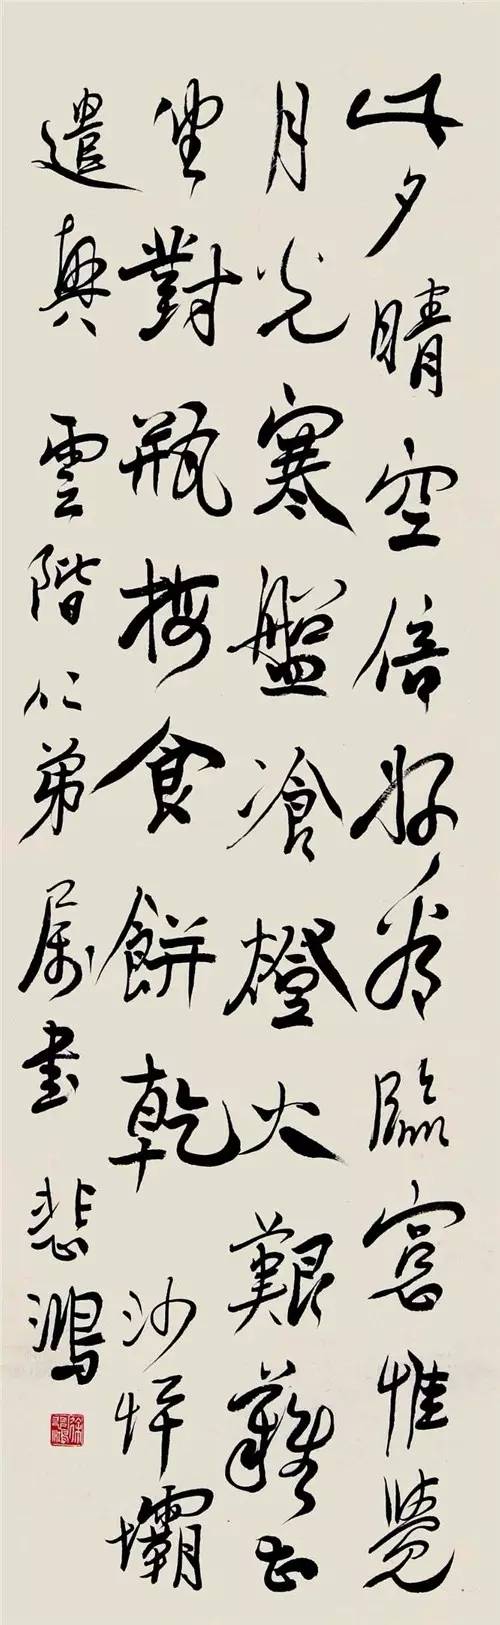 此夕晴空倍好看臨窗惟覺
月光寒盤飡燈火艱難甚
坐對瓶梅食餅乾 沙坪壩
遣興 雲階仁弟屬書 悲鴻